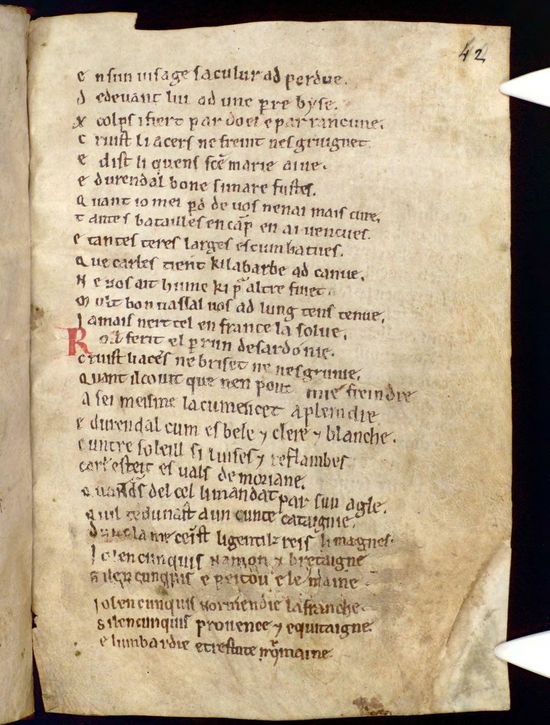 42
e nsun uisage sa culur ad perdue.
d edeuant lui ad une perre byse.
x colps i fiert par doel e par rancune.
c ruist li acers ne freint ne sgruignet.
e dist li quens sce marie aiue.
e durendal bone si mare fustes.
q uant io mei pd de uos nen ai mais cure.
t antes batailles en camp en ai uencues.
e tantes teres larges escumbatues.
q ue carles tient ki la barbe ad canue.
n e uos ait hume ki p altre fuiet.
m ult bon uassal uos ad lung tens tenue.
j amais nert tel en france la solue.
R oll ferit el perrun de sardonie.
c ruist li acers ne briset ne nesgrunie.
q uant il co uit que nen pout mie freindre
a sei meisme la cumencet a pleindre
e durendal cum es bele 7 clere 7 blanche.
c untre soleill si luises 7 reflambes
carl esteit es uals de moriane.
q uands del cel li mandat par sun agle.
q uil te dunast a un cunte cataignie.
d unc la me ceinst li gentilz reis li magnes.
j o len cunquis namon 7 bretaigne
s i len cunquis e peitou e le maine
j o len cunquis normendie la franche.
s i len cunquis prouence 7 equitaigne.
e lumbardie e trestute romaine